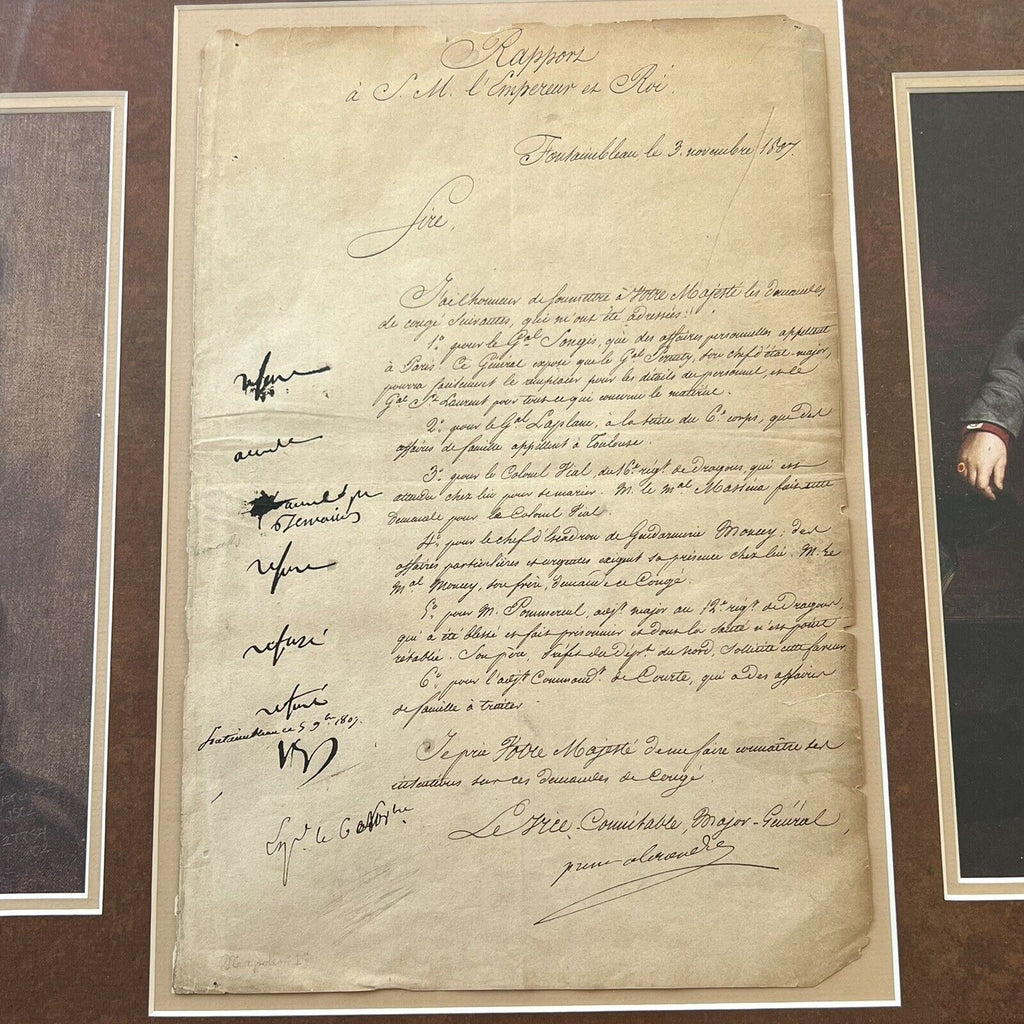 Rapport
à S. M. l'Empereur et Roi.
Fontainebleau le 3. novembre 1807.
Sire,
J'ai l'honneur de soumettre à Votre Majesté les demandes
de congé suivantes, qui m'ont été adressées:
1°. pour le Gal Songis, que des affaires personnelles appellent
à Paris. Ce Général expose que le Gal Pernety, son chef d'état-major,
pourra facilement le remplacer pour les détails du personnel, et le
Gal St Laurent pour tout ce qui concerne le matériel.
refusé
2°. pour le Gal Laplane, à la suite du 6e corps, que des
affaires de famille appellent à Toulouse.
accordé
3°. pour le Colonel Vial, du 16e régt de Dragons, qui est
attendu chez lui pour se marier. M. le mal Masséna fait cette
demande pour le Colonel Vial.
4°. pour le chef d'Escadron de Gendarmerie Moncey; des
affaires particulières et urgentes exigent sa présence chez lui. M. le
Mal Moncey, son frère, demande ce Congé.
refusé
5°. pour M. Pommereul, adjt major au 12e régt de Dragons,
qui a été blessé et fait prisonnier et dont la santé n'est point
rétablie. Son père, Préfet du Dépt du Nord, sollicite cette faveur.
refusé
6°. pour l'adjt Commandt de Courte, qui a des affaires
de famille à traiter.
refusé
Fontainebleau ce 5 9bre 1807.
Je prie Votre Majesté de me faire connaître ses
intentions sur ces demandes de Congé.
Le Vice-Connétable, Major-Général,
prince alexandre
Napoléon Ier